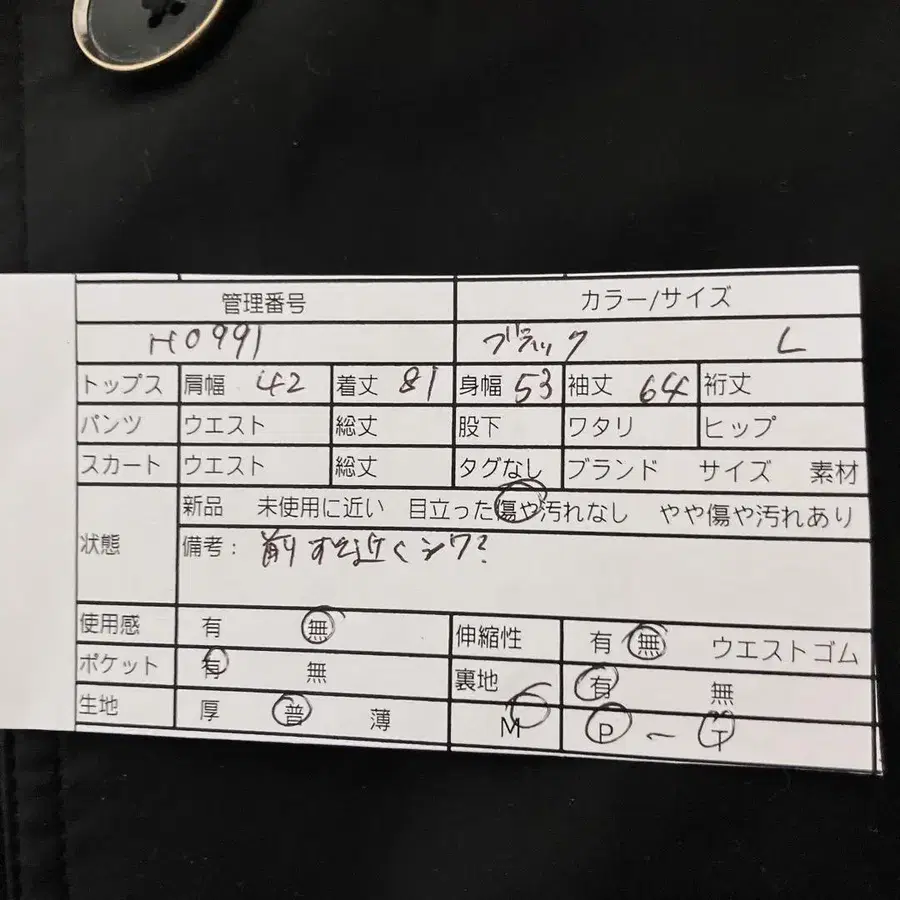 管理番号 カラー/サイズ
H0991 ブラック L
トップス 肩幅 42 着丈 81 身幅 53 袖丈 64 裄丈
パンツ ウエスト 総丈 股下 ワタリ ヒップ
スカート ウエスト 総丈 タグなし ブランド サイズ 素材
状態 新品 未使用に近い 目立った傷や汚れなし やや傷や汚れあり
備考： 前すそ近くシワ?
使用感 有 無 伸縮性 有 無 ウエストゴム
ポケット 有 無 裏地 有 無
生地 厚 普 薄 M P ~ T